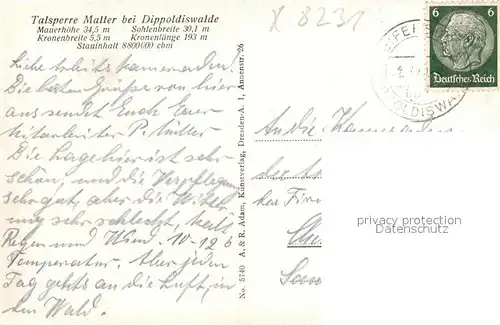 Talsperre Malter bei Dippoldiswalde
Mauerhöhe 34,5 m Sohlenbreite 30,1 m
Kronenbreite 5,5 m Kronenlänge 193 m
Stauinhalt 8800000 cbm
X 8231
6 6
Deutsches Reich
Liebe Arbeitskameraden!
Die besten Grüsse von hier
aus sendet Euch Euer
Mitarbeiter P. Müller
Die Lage hier ist sehr
schön, und die Verpflegung
sehr gut, aber die Witter
ung sehr schlecht, kalt
Regen und Wind. 10-12
Temperatur. Aber jeden
Tag gehts an die Luft, in
den Wald.
No. 5740 A. & R. Adam, Kunstverlag, Dresden-A. 1, Annenstr. 26
An die
der
der Fir
privacy protection
Datenschutz